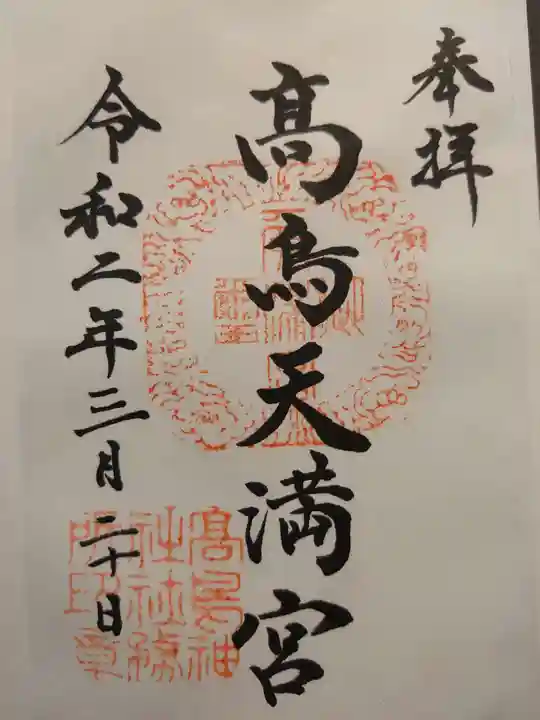 奉拝
髙鳥天満宮
令和二年三月二十日
髙鳥神
社社務
所印章